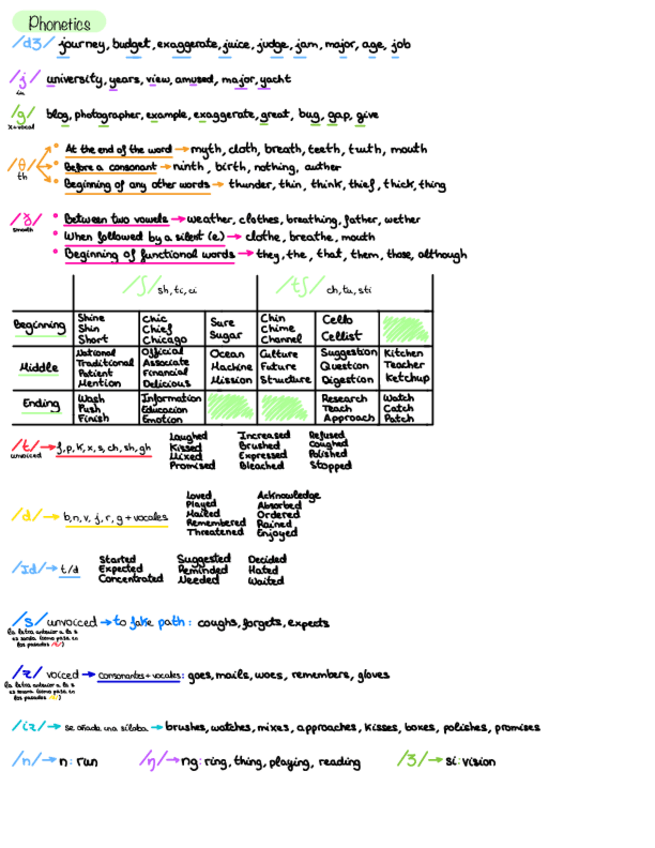 Phonetics
/dʒ/ journey, budget, exaggerate, juice, judge, jam, major, age, job
/j/ university, years, view, amused, major, yacht
iu
/g/ blog, photographer, example, exaggerate, great, bug, gap, give
x+vocal
/θ/ th
• At the end of the word → myth, cloth, breath, teeth, truth, mouth
• Before a consonant → ninth, birth, nothing, author
• Beginning of any other words → thunder, thin, think, thief, thick, thing
/ð/ smooth
• Between two vowels → weather, clothes, breathing, father, wether
• When followed by a silent (e) → clothe, breathe, mouth
• Beginning of functional words → they, the, that, them, those, although
/ʃ/ sh, ti, ci /tʃ/ ch, tu, sti
Beginning
Shine Chic Sure Chin Cello
Skin Chief Sugar Chime Cellist
Short Chicago Channel
Middle
National Official Ocean Culture Suggestion Kitchen
Traditional Associate Machine Future Question Teacher
Patient Financial Mission Structure Digestion Ketchup
Mention Delicious
Ending
Wash Information Research Watch
Push Educacion Teach Catch
Finish Emotion Approach Patch
/t/ → f, p, k, x, s, ch, sh, gh
unvoiced
Laughed Increased Refused
Kissed Brushed Coughed
Mixed Expressed Polished
Promised Bleached Stopped
/d/ → b, n, v, j, r, g + vocales
Loved Acknowledge
Played Absorbed
Mailed Ordered
Remembered Rained
Threatened Enjoyed
/Id/ → t/d
Started Suggested Decided
Expected Reminded Hated
Concentrated Needed Waited
/s/ unvoiced → to fake path: coughs, forgets, expects
la letra anterior a la s
es sorda (como pasa en
los pasados /t/)
/z/ voiced → consonantes + vocales: goes, mails, woes, remembers, gloves
la letra anterior a la s
es sonora (como pasa en
los pasados /d/)
/iz/ → se añade una sílaba → brushes, watches, mixes, approaches, kisses, boxes, polishes, promises
/n/ → n: run /ŋ/ → ng: ring, thing, playing, reading /ʒ/ → si: vision